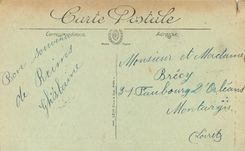 Carte Postale
Correspondance
Adresse
Bon souvenir
de Reims
Ghislaine
Monsieur et Madame
Brécy
31 Faubourg d'Orléans
Montargis
(Loiret)